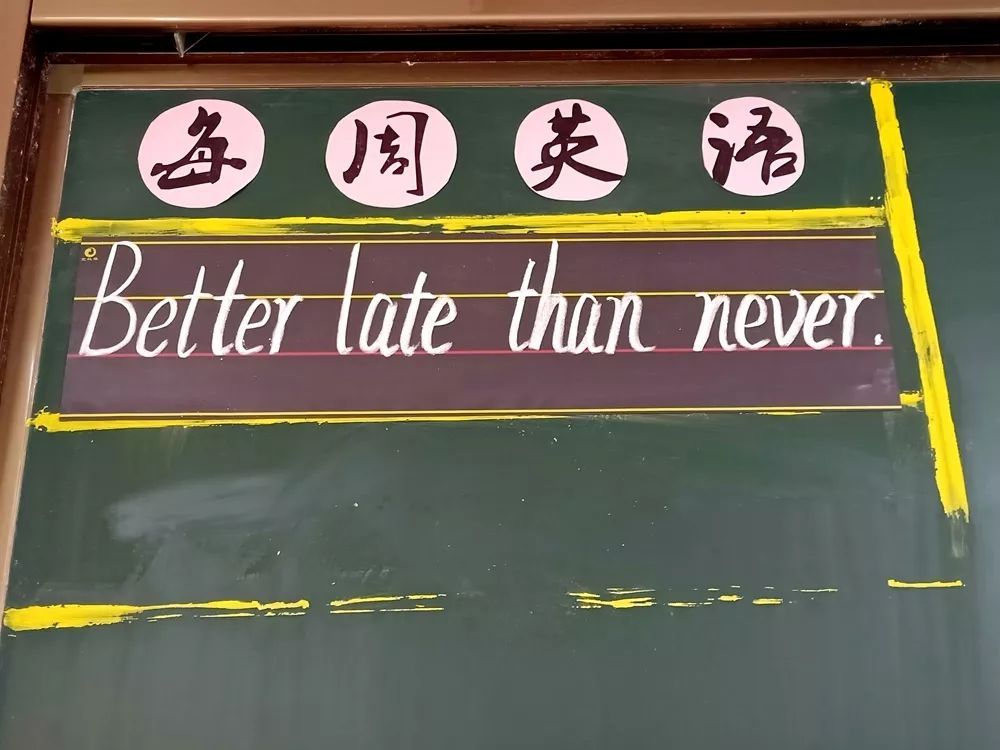 每周英语
Better late than never.